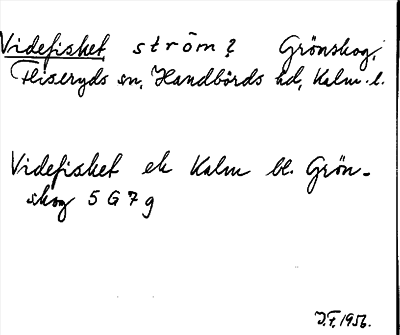 Videfisket ström? Grönskog,
Fliseryds sn, Handbörds hd, Kalm. l.
Videfisket ek Kalm bl. Grön-
skog 5 G 7 g
J.F. 1956.